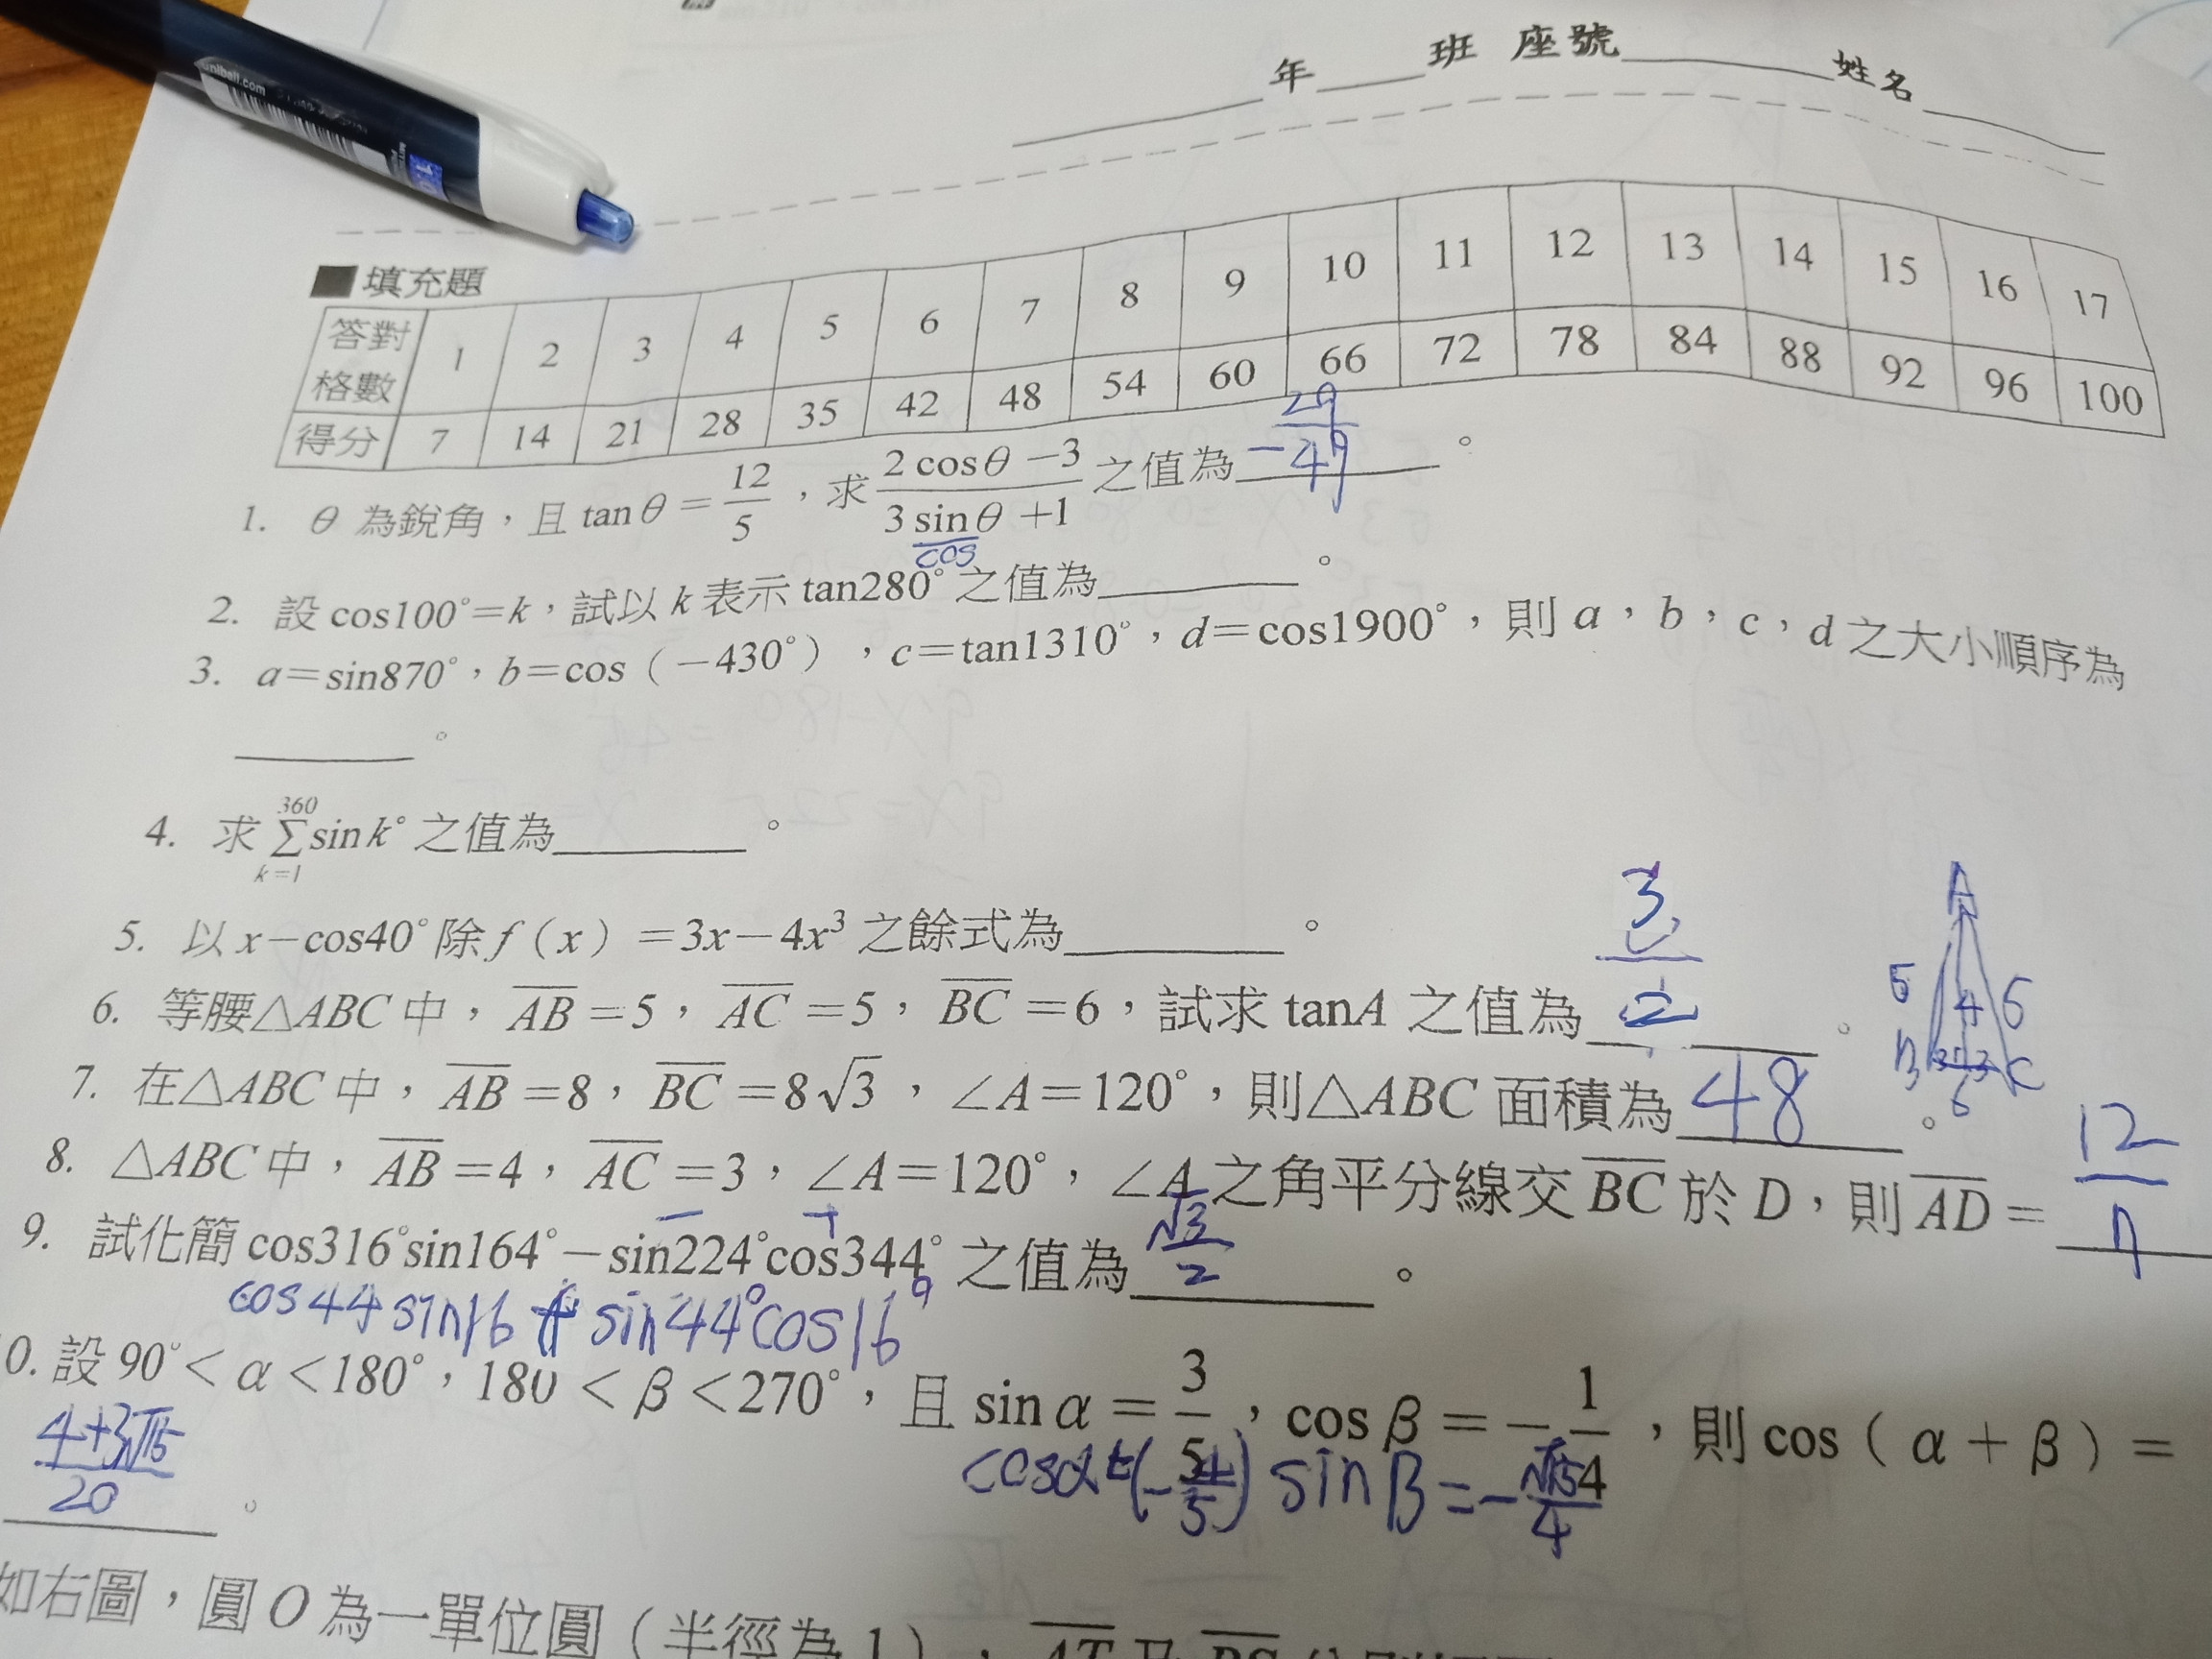 uniball.com
年 班 座號 姓名
■填充題
答對格數 1 2 3 4 5 6 7 8 9 10 11 12 13 14 15 16 17
得分 7 14 21 28 35 42 48 54 60 66 72 78 84 88 92 96 100
1. θ 為銳角，且 tanθ = 12/5，求 (2cosθ −3)/(3sinθ +1) 之值為 −29/49。
cos
2. 設 cos100°=k，試以 k 表示 tan280° 之值為______。
3. a=sin870°，b=cos（−430°），c=tan1310°，d=cos1900°，則 a，b，c，d 之大小順序為
______。
4. 求 Σ(k=1→360) sin k° 之值為______。
5. 以 x−cos40° 除 f（x）=3x−4x³ 之餘式為______。
6. 等腰△ABC 中，AB=5，AC=5，BC=6，試求 tanA 之值為 3/2。
A
5 4 5
B 3 3 C
6
7. 在△ABC 中，AB=8，BC=8√3，∠A=120°，則△ABC 面積為 48。
8. △ABC 中，AB=4，AC=3，∠A=120°，∠A 之角平分線交 BC 於 D，則 AD= 12/7
− +
9. 試化簡 cos316°sin164°−sin224°cos344° 之值為 √3/2。
cos44 sin16 + sin44°cos16°
0. 設 90°<α<180°，180<β<270°，且 sin α = 3/5，cos β = −1/4，則 cos（α+β）=
cosα=(−4/5) sinβ=−√15/4
(4+3√15)/20。
如右圖，圓 O 為一單位圓（半徑為 1），AT